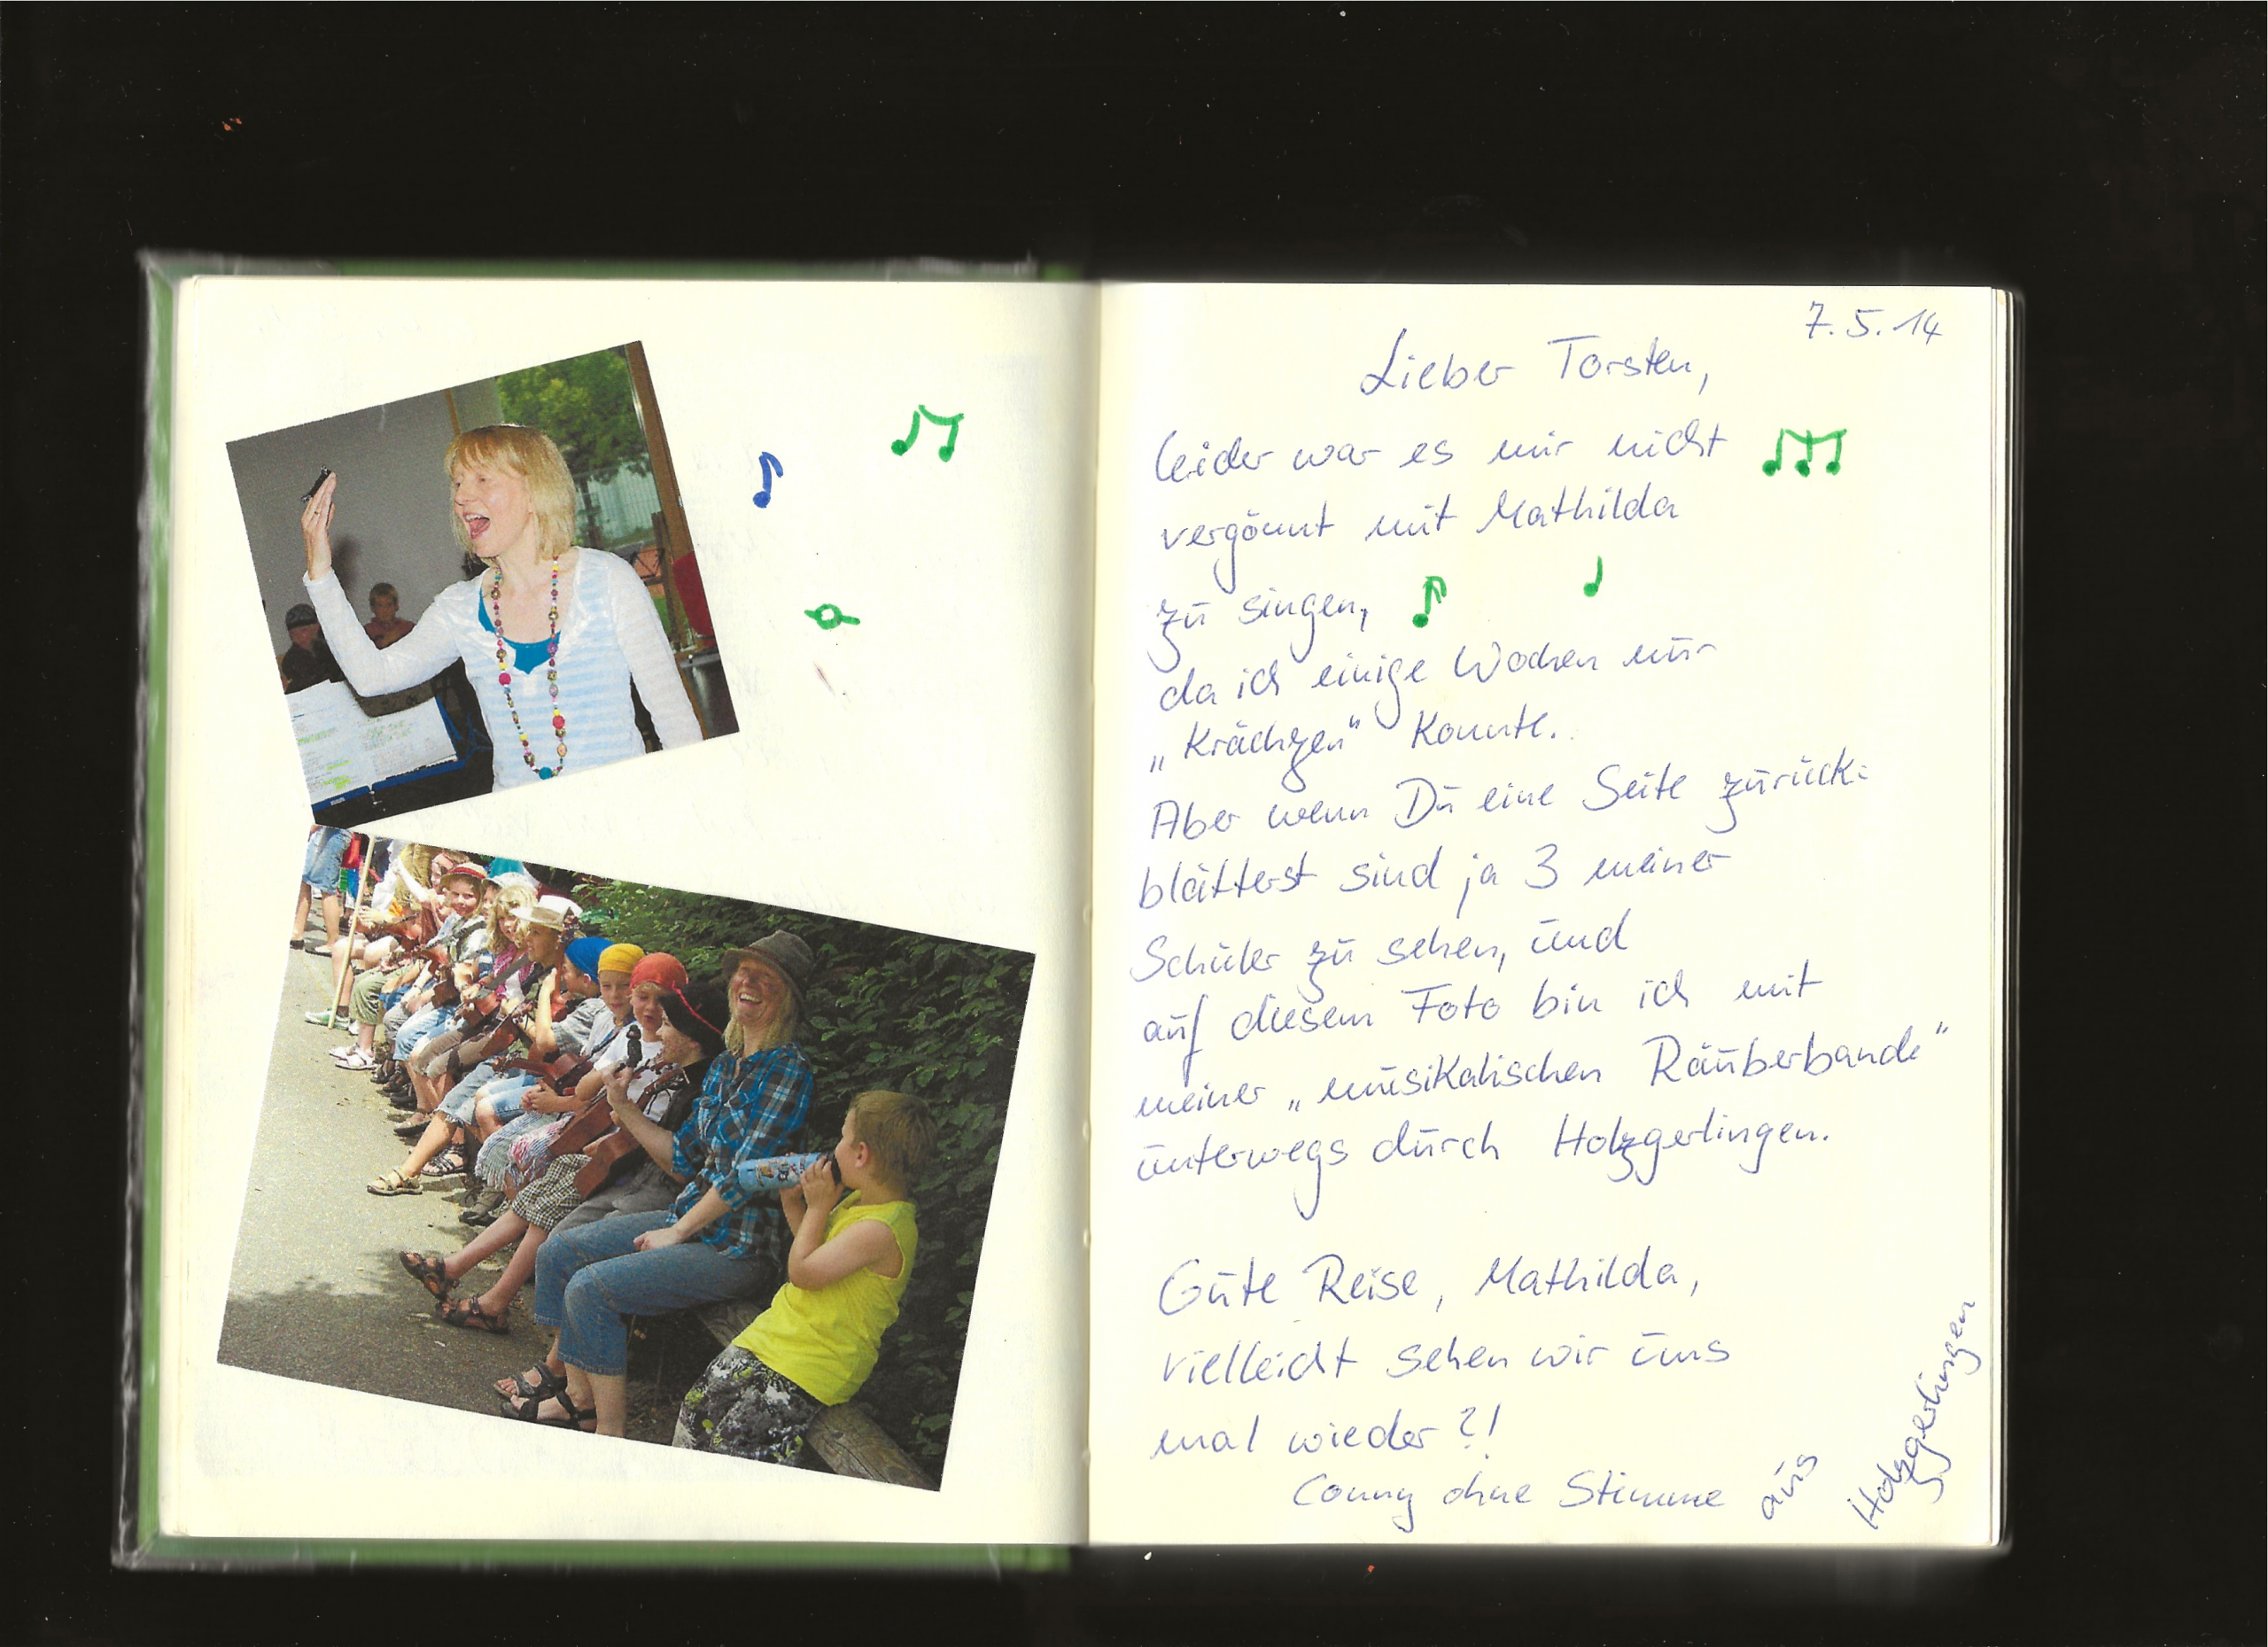 7.5.14
Lieber Torsten,
leider war es mir nicht
vergönnt mit Mathilda
zu singen,
da ich einige Wochen nur
„Krächzen" konnte.
Aber wenn Du eine Seite zurück=
blätterst sind ja 3 meiner
Schüler zu sehen, und
auf diesem Foto bin ich mit
meiner „musikalischen Räuberbande"
unterwegs durch Holzgerlingen.
Gute Reise, Mathilda,
vielleicht sehen wir uns
mal wieder?!
Conny ohne Stimme aus Holzgerlingen